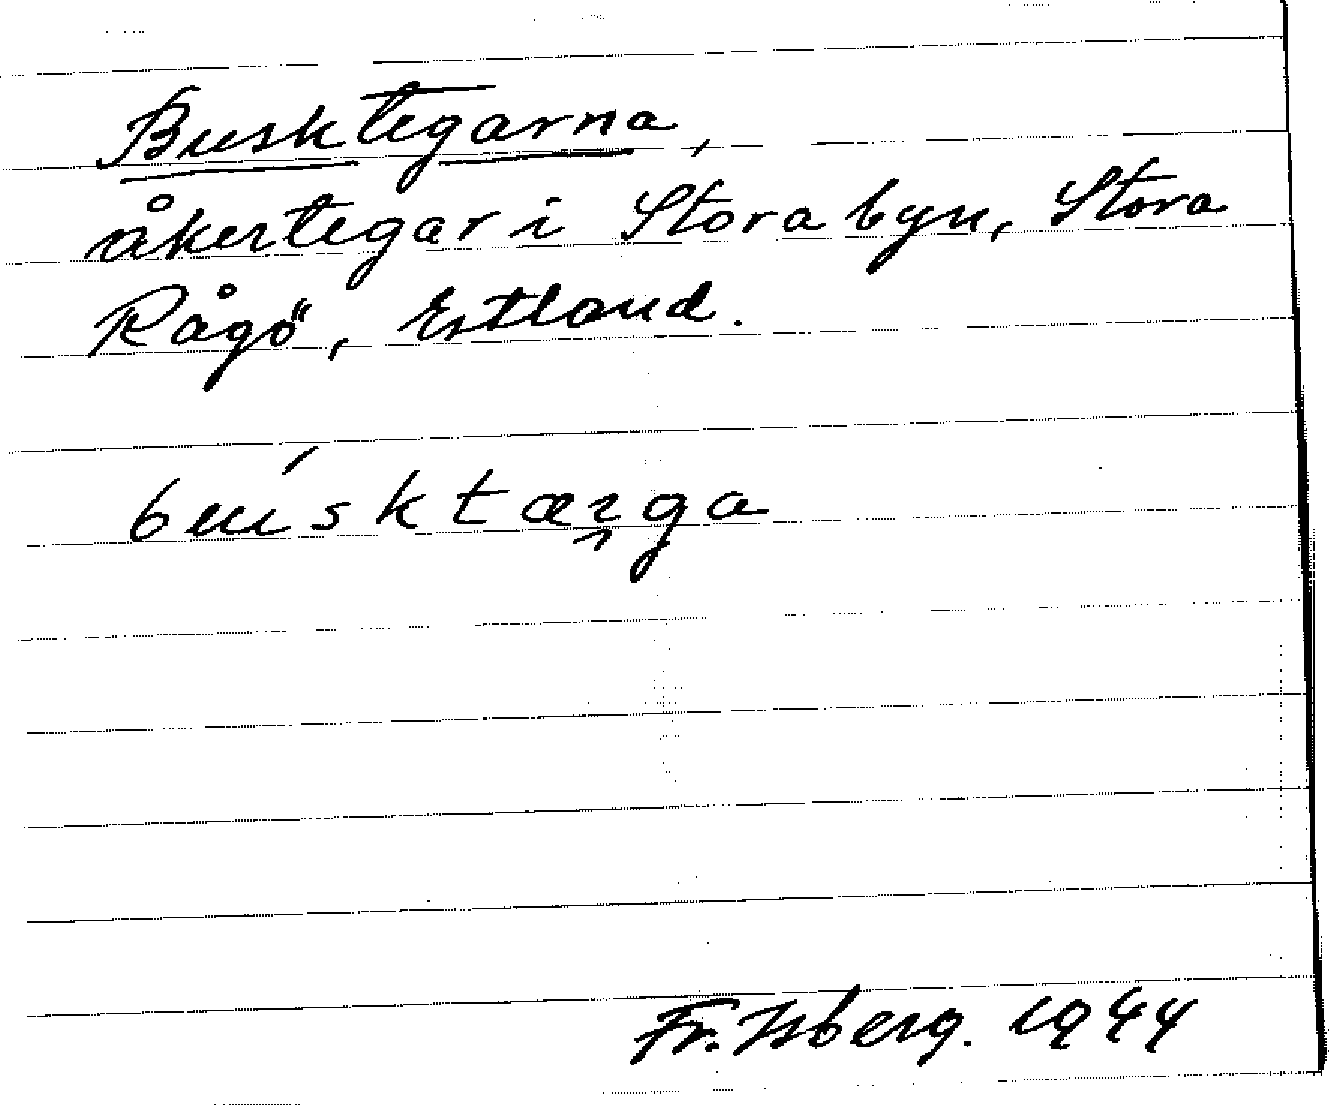 Busktegarna,
åkertegar i Stora byn, Stora
Rågö, Estland.
Fr. Isberg. 1944